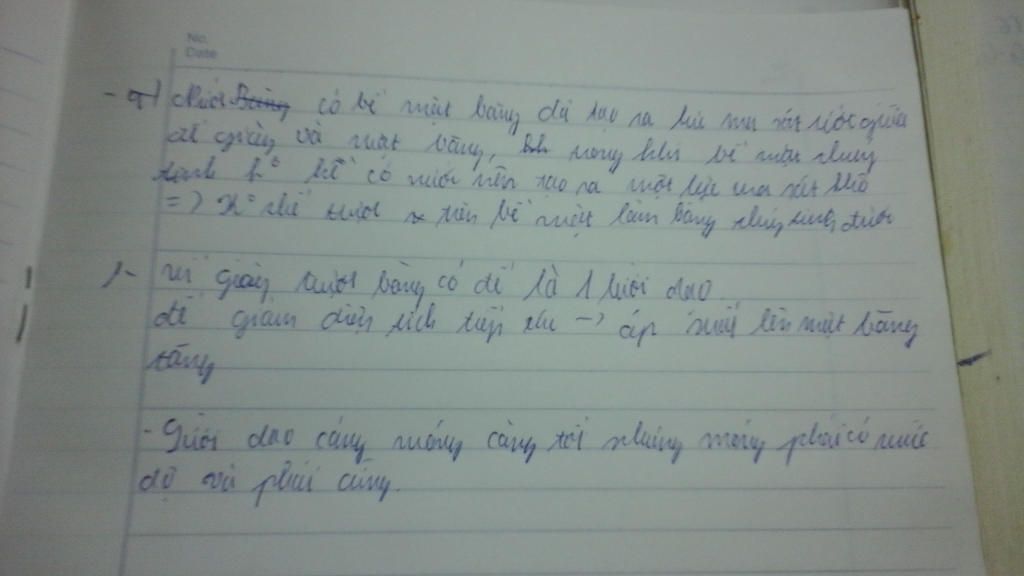 No.
Date
- Nước Băng có bề mặt băng để tạo ra lực ma sát ướt giữa
đế giày và mặt băng, trong khi bề mặt thuỷ
tinh k° hề có nước nên tạo ra một lực ma sát khô
=> k° thể trượt trên bề mặt làm bằng thuỷ tinh được
1- Vì giày trượt băng có đế là 1 lưỡi dao
để giảm diện tích tiếp xúc -> áp suất lên mặt băng
tăng
- Lưỡi dao càng mỏng càng tốt nhưng mỏng phải có mức
độ và phải cứng.